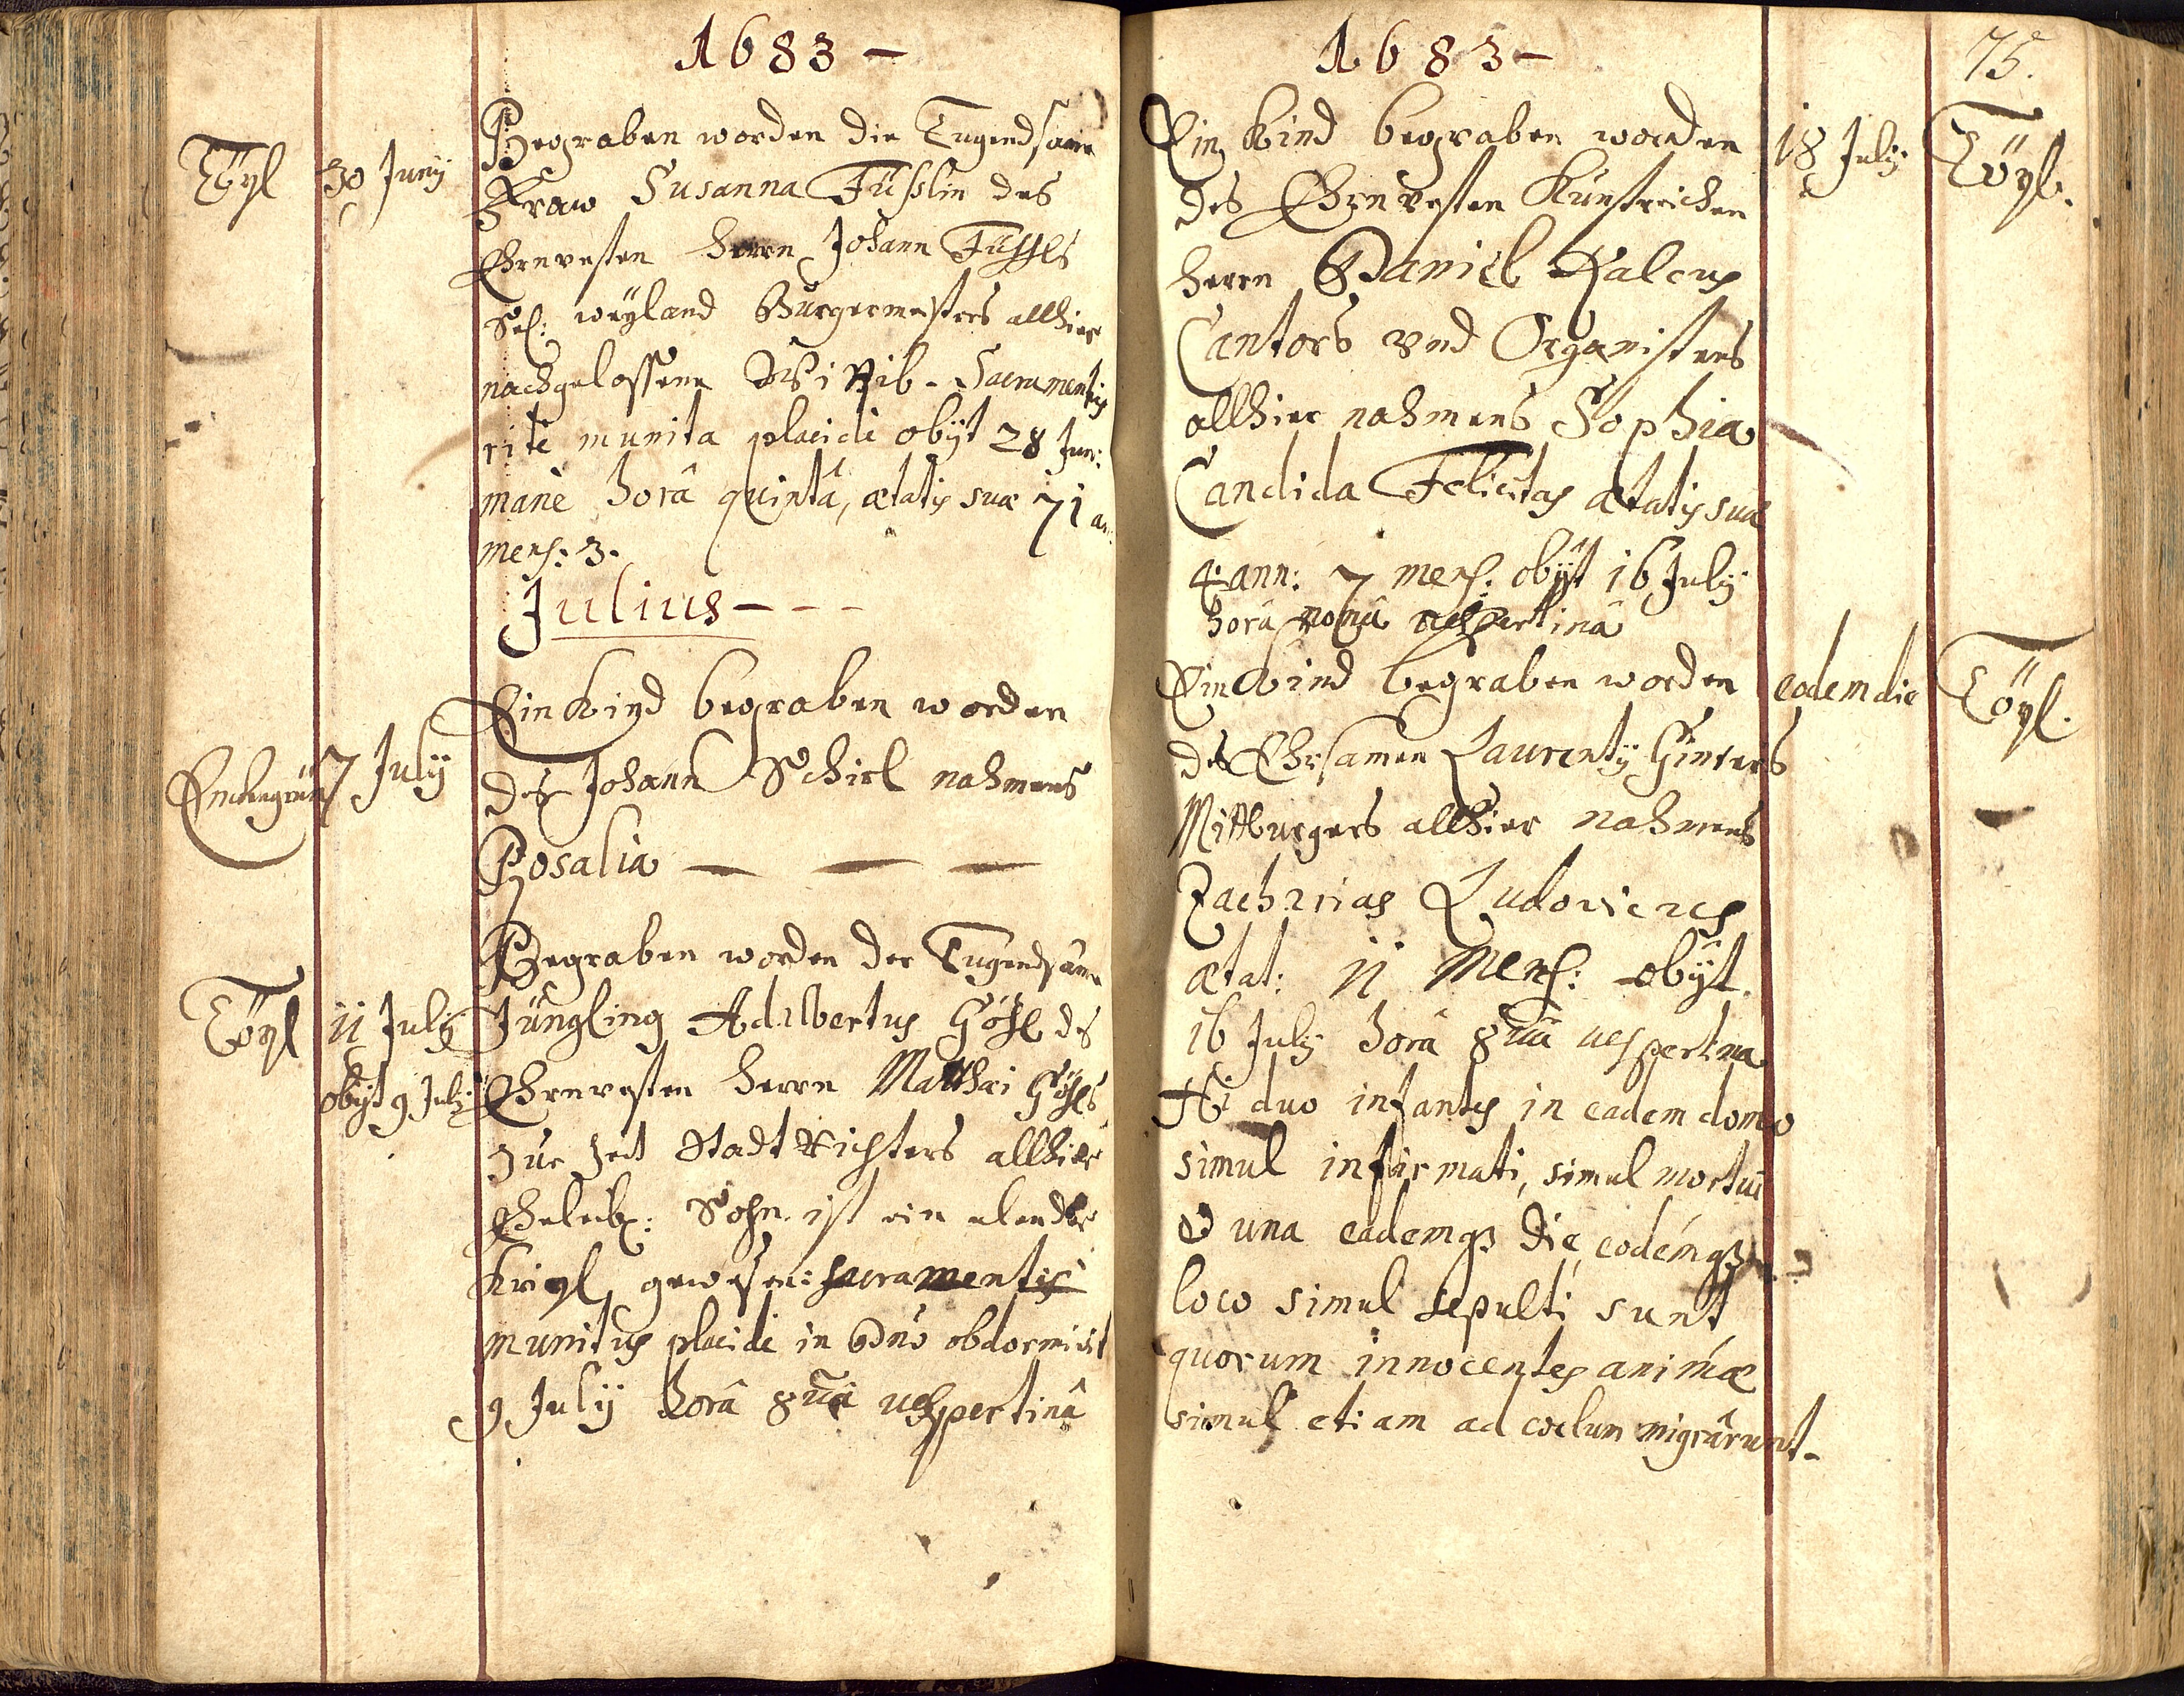 1683 -
Töpl
30 Juny
Begraben worden die Tugendsame
Fraw Susanna Füßlin des
Ehrnvesten herrn Johann Füssls
Sel: weyland Burgermeisters allhier
nachgelassene Wittib - Sacramentis
ritè munita placidè obijt 28 Jun:
manè horâ quintâ, ætatis suæ 71 an:
mens: 3.
Julius - - -
Ein Kind begraben worden
7 July
des Johann Schirl nahmens
Rosalia — — —
Begraben worden der Tugendsame
Töpl
11 July
Jüngling Adalbertus Gößl des
obijt 9 July
Ehrnvesten herrn Matthæi Gößls
zur Zeit Stadt Richters allhier
Sohn. ist ein elender
gewesen: sacramentis
munitus placidè in Dño obdormivit
9 July horâ 8uâ uespertinâ
1683 -
75.
Ein Kind begraben worden
18 July
Töpl.
des Ehrnvesten Kunstreichen
herrn Daniel
Cantors vnd Organistens
allhier nahmens Sophia
Candida Felicitas ætatis suæ
4 ann: 7 mens: obijt 16 July
horâ nonâ uespertinâ
Ein Kind begraben worden
eodem die
Töpl.
des Ehrsamen Laurenty Günters
Mitburgers allhier nahmens
Zacharias Ludovicus
ætat: 11 Mens: obijt
16 July horâ 8uâ uespertina
Hi duo infantes in eadem domo
simul infirmati, simul mortui
& una eademqз die, eodémqз
loco simul sepulti sunt
quorum innocentes animæ
simul etiam ad cœlum migrârunt.